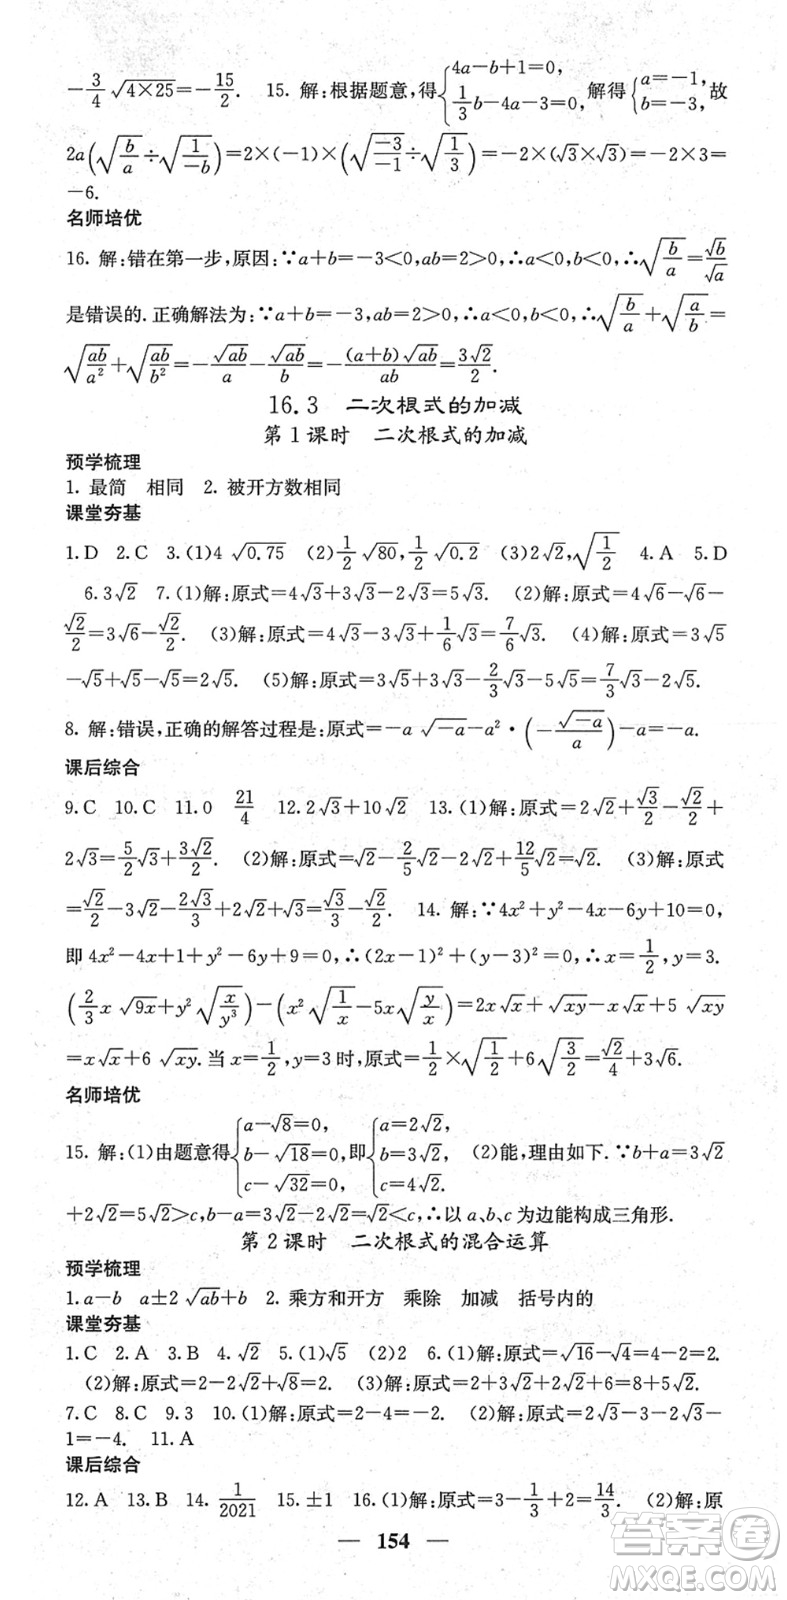 -3/4 √(4×25)=-15/2. 15. 解:根据题意,得{4a-b+1=0, 1/3 b-4a-3=0, 解得{a=-1, b=-3, 故
2a(√(b/a)÷√(1/-b))=2×(-1)×(√(-3/-1)÷√(1/3))=-2×(√3×√3)=-2×3=
-6.
名师培优
16. 解:错在第一步,原因:∵a+b=-3<0,ab=2>0,∴a<0,b<0,∴√(b/a)=√b/√a
是错误的.正确解法为:∵a+b=-3,ab=2>0,∴a<0,b<0,∴√(b/a)+√(a/b)=
√(ab/a²)+√(ab/b²)=-√ab/a-√ab/b=-(a+b)√ab/ab=3√2/2.
16.3 二次根式的加减
第1课时 二次根式的加减
预学梳理
1. 最简 相同 2. 被开方数相同
课堂夯基
1.D 2.C 3.(1)4 √0.75 (2)1/2 √80,1/2 √0.2 (3)2√2,√(1/2) 4.A 5.D
6.3√2 7.(1)解:原式=4√3+3√3-2√3=5√3. (2)解:原式=4√6-√6-
√2/2=3√6-√2/2. (3)解:原式=4√3-3√3+1/6√3=7/6√3. (4)解:原式=3√5
-√5+√5-√5=2√5. (5)解:原式=3√5+3√3-2/3√3-5√5=7/3√3-2√5.
8. 解:错误,正确的解答过程是:原式=-a √-a-a²·(-√-a/a)-a=-a.
课后综合
9.C 10.C 11.0 21/4 12.2√3+10√2 13.(1)解:原式=2√2+√3/2-√2/2+
2√3=5/2√3+3√2/2. (2)解:原式=√2-2/5√2-2√2+12/5√2=√2. (3)解:原式
=√2/2-3√2-2√3/3+2√2+√3=√3/3-√2/2. 14. 解:∵4x²+y²-4x-6y+10=0,
即4x²-4x+1+y²-6y+9=0,∴(2x-1)²+(y-3)²=0,∴x=1/2,y=3.
(2/3 x √9x+y²√(x/y³))-(x²√(1/x)-5x√(y/x))=2x√x+√xy-x√x+5 √xy
=x√x+6 √xy.当x=1/2,y=3时,原式=1/2×√(1/2)+6√(3/2)=√2/4+3√6.
名师培优
15. 解:(1)由题意得{a-√8=0, b-√18=0, c-√32=0, 即{a=2√2, b=3√2, c=4√2. (2)能,理由如下.∵b+a=3√2
+2√2=5√2>c,b-a=3√2-2√2=√2<c,∴以a、b、c为边能构成三角形.
第2课时 二次根式的混合运算
预学梳理
1.a-b a±2 √ab+b 2. 乘方和开方 乘除 加减 括号内的
课堂夯基
1.C 2.A 3.B 4.√2 5.(1)√5 (2)2 6.(1)解:原式=√16-√4=4-2=2.
(2)解:原式=2-2√2+√8=2. (3)解:原式=2+3√2+2√2=2+5√2.
7.C 8.C 9.3 10.(1)解:原式=2-4=-2. (2)解:原式=2√3-3-2√3-
1=-4. 11.A
课后综合
12.A 13.B 14. 1/2021 15.±1 16.(1)解:原式=3-1/3+2=14/3. (2)解:原
— 154 —
答案圈
MXQE.COM